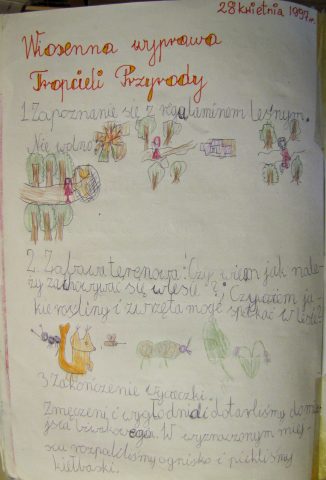 28 kwietnia 1997r.
Wiosenna wyprawa
Tropicieli Przyrody
1. Zapoznanie się z regulaminem leśnym.
Nie wolno:
2. Zabawa terenowa: Czy wiem jak nale-
ży zachowywać się w lesie?; Czy wiem ja-
kie rośliny i zwierzęta mogę spotkać w lesie?
3 Zakończenie wycieczki.
Zmęczeni i wygłodniali dotarliśmy do mie-
jsca W wyznaczonym miej-
scu rozpaliliśmy ognisko i piekliśmy
kiełbaski.